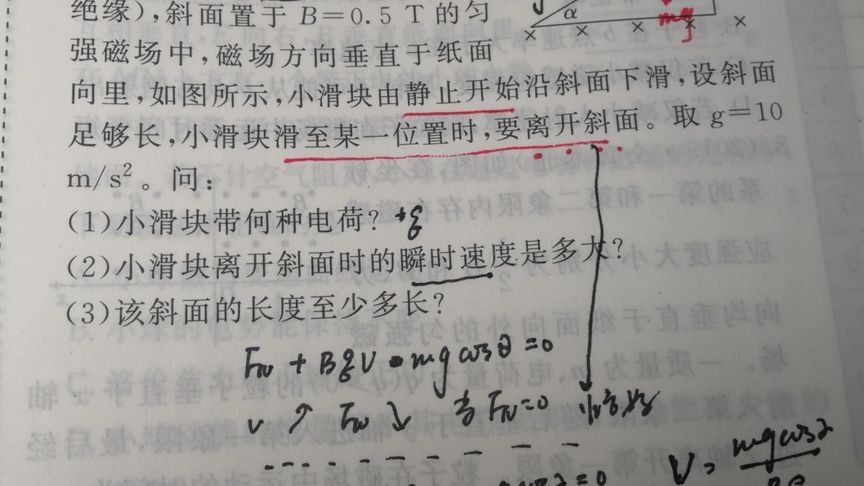 绝缘),斜面置于 B=0.5 T 的匀
α
mg
× × × × ×
强磁场中,磁场方向垂直于纸面
向里,如图所示,小滑块由静止开始沿斜面下滑,设斜面
足够长,小滑块滑至某一位置时,要离开斜面。取 g=10
m/s²。问:
(1)小滑块带何种电荷? +q
(2)小滑块离开斜面时的瞬时速度是多大?
(3)该斜面的长度至少多长?
FN + BqV - mg cosθ = 0
V ↗ FN ↘ 当 FN=0
V = mg cosα
=0